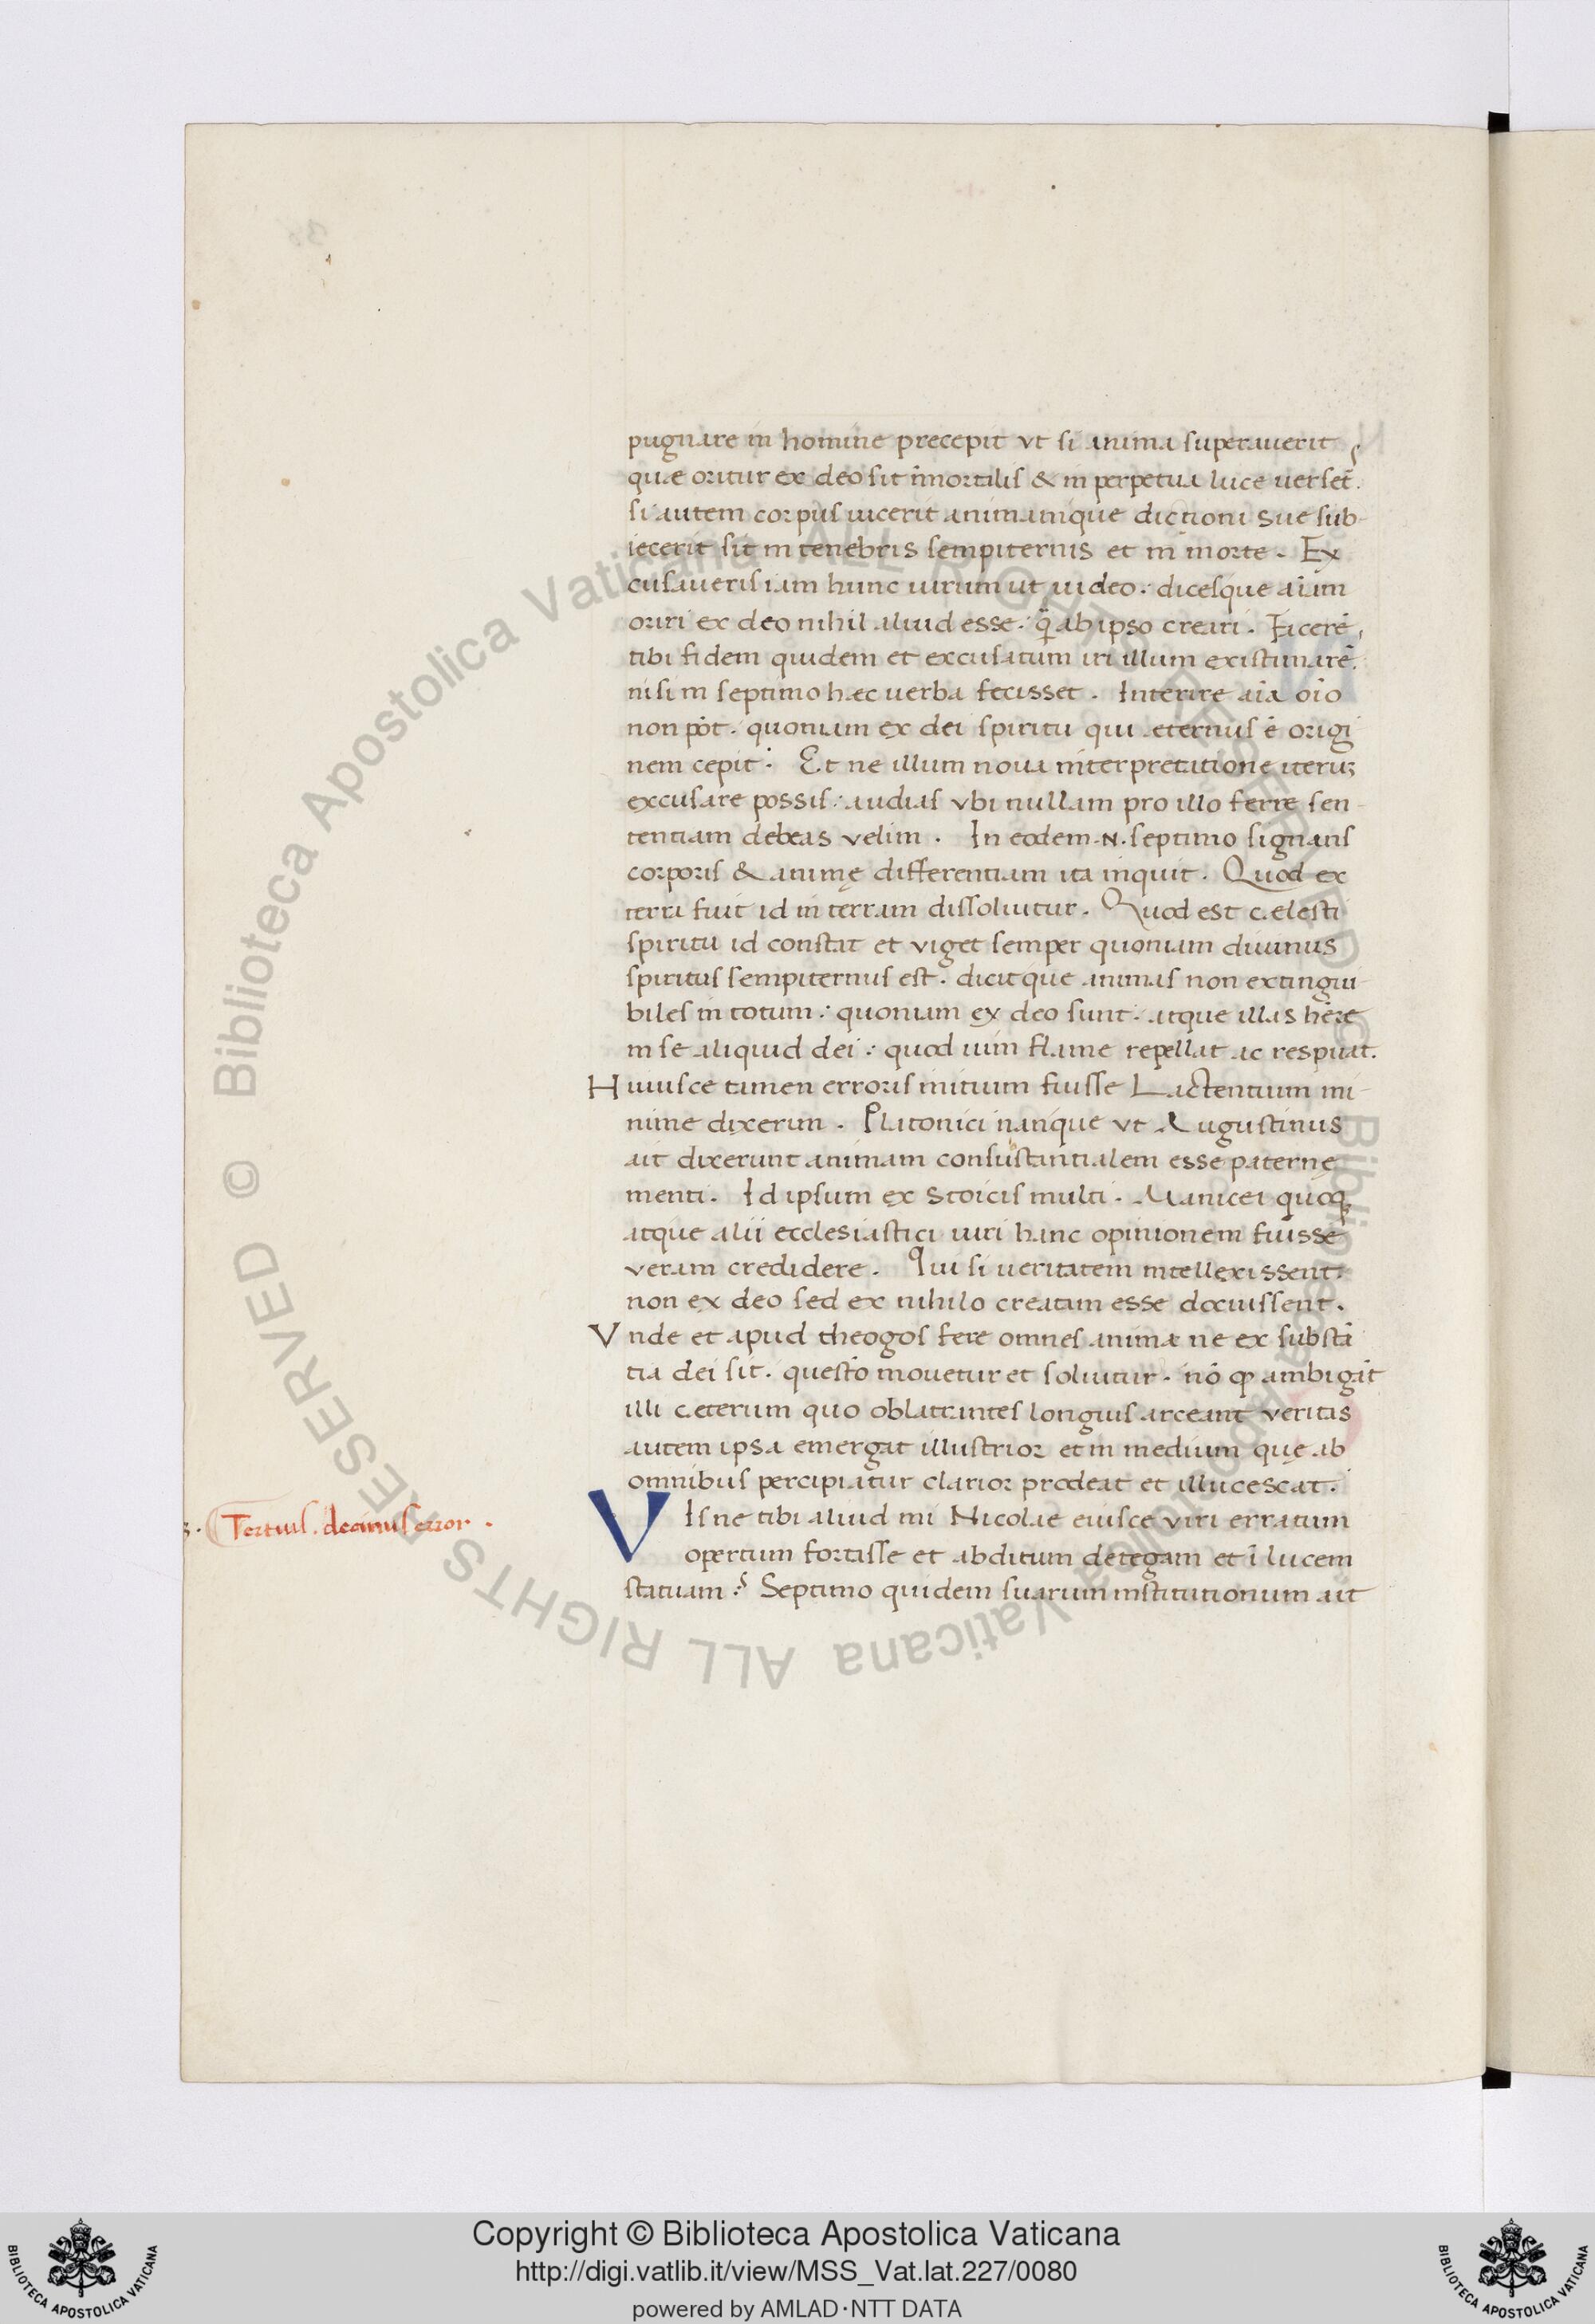 pugnare in homine precepit vt si anima superauerit
quæ oritur ex deo sit īmortalis & in perpetua luce uerset̄.
si autem corpus uicerit animamque dictioni sue sub-
iecerit sit in tenebris sempiternis et in morte. Ex
cusaueris iam hunc uirum ut uideo: dicesque aīam
oriri ex deo nihil aliud esse: q̄ ab ipso creari. Facerē
tibi fidem quidem et excusatum iri illum existimarē.
nisi in septimo hæc uerba fecisset. Interire aīa oīo
non pōt: quoniam ex dei spiritu qui æternus ē origi
nem cepit: Et ne illum noua interpretatione iteruꝫ
excusare possis: audias vbi nullam pro illo ferre sen-
tentiam debeas velim. In eodem .N. septimo signans
corporis & animę differentiam ita inquit. Quod ex
terra fuit id in terram dissoluitur. Quod est cælesti
spiritu id constat et viget semper quoniam diuinus
spiritus sempiternus est. dicitque animas non extingui-
biles in totum: quoniam ex deo sunt: atque illas hēre
in se aliquid dei: quod uim flame repellat ac respuat.
Huiusce tamen erroris initium fuisse Lactentium mi-
nime dixerim. Platonici nanque vt Augustinus
ait dixerunt animam consustantialem esse paternę
menti. Id ipsum ex Stoicis multi. Manicei quoqꝫ
atque alii ecclesiastici uiri hanc opinionem fuisse
veram credidere. Qui si ueritatem intellexissent:
non ex deo sed ex nihilo creatam esse docuissent.
Vnde et apud theogos fere omnes animæ ne ex substā
tia dei sit: questō mouetur et soluitur. nō ꝙ ambigāt
illi cæterum quo oblatrantes longius arceant veritas
autem ipsa emergat illustrior et in medium quę ab
omnibus percipiatur clarior prodeat et illucescat.
3. Tertius. decimus error.
VIsne tibi aliud mi Nicolae eiusce viri erratum
opertum fortasse et abditum detegam et ī lucem
statuam? Septimo quidem suarum institutionum ait
Copyright © Biblioteca Apostolica Vaticana
http://digi.vatlib.it/view/MSS_Vat.lat.227/0080
powered by AMLAD·NTT DATA
© Biblioteca Apostolica Vaticana ALL RIGHTS RESERVED
© Biblioteca Apostolica Vaticana ALL RIGHTS RESERVED
BIBLIOTECA APOSTOLICA VATICANA
BIBLIOTECA APOSTOLICA VATICANA